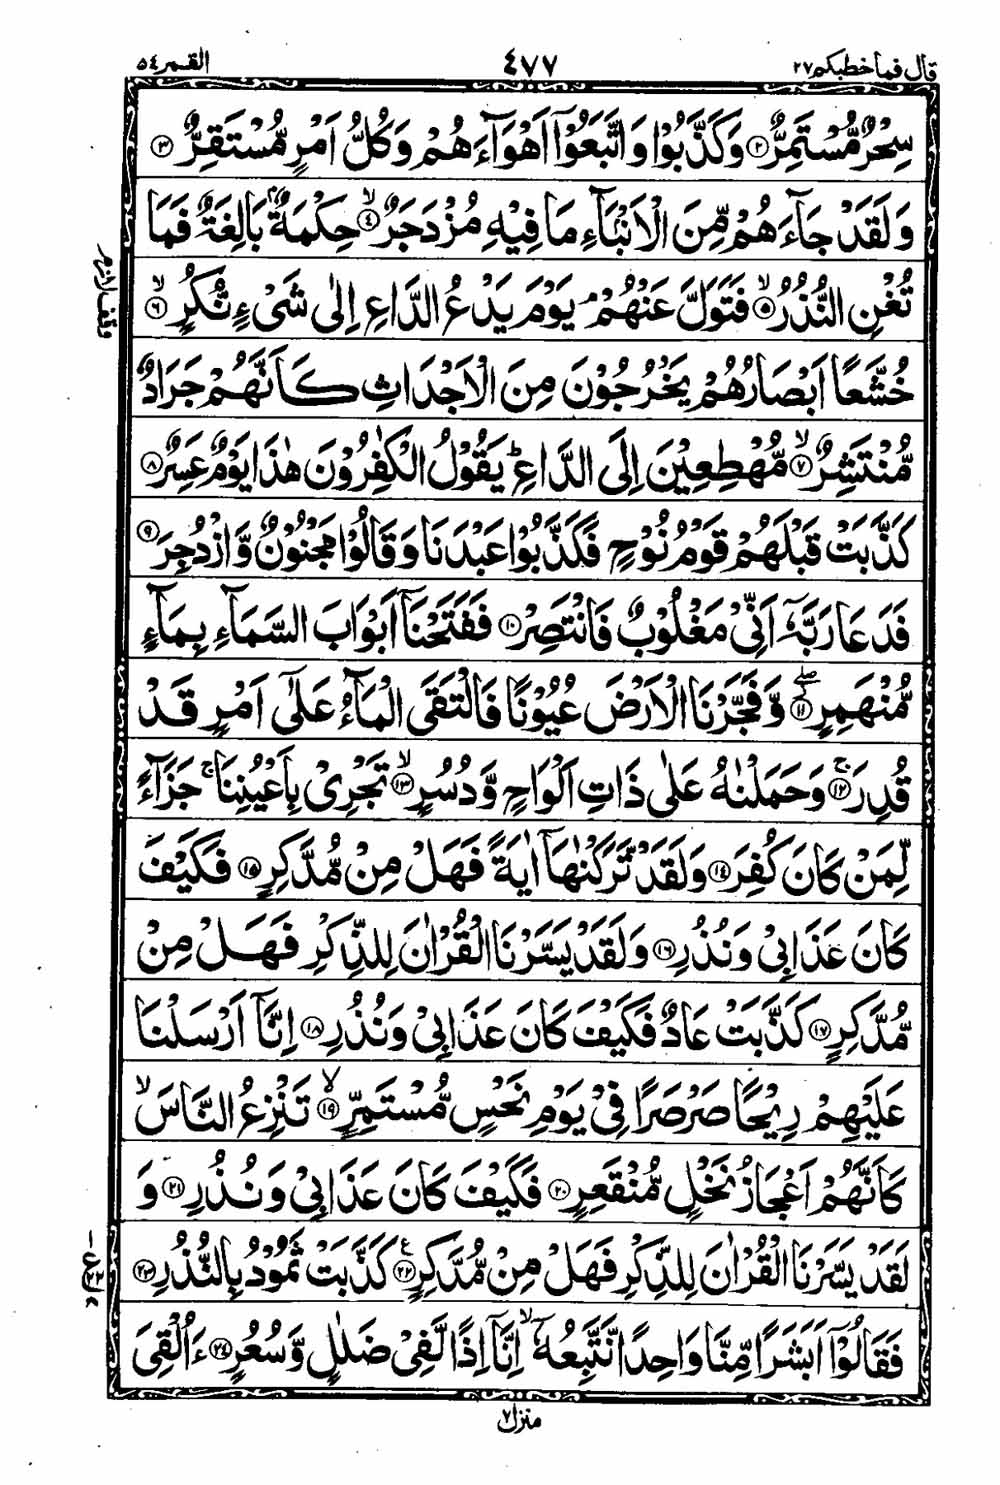 قال فما خطبكم ٢٧ ٤٧٧ القمر ٥٤
سِحْرٌ مُّسْتَمِرٌّ ﴿٢﴾ وَكَذَّبُوْا وَاتَّبَعُوْٓا اَهْوَآءَهُمْ وَكُلُّ اَمْرٍ مُّسْتَقِرٌّ ﴿٣﴾
وَلَقَدْ جَآءَهُمْ مِّنَ الْاَنْۢبَآءِ مَا فِيْهِ مُزْدَجَرٌ ﴿٤﴾ۙ حِكْمَةٌۢ بَالِغَةٌ فَمَا
تُغْنِ النُّذُرُ ﴿٥﴾ۙ فَتَوَلَّ عَنْهُمْ ۘ يَوْمَ يَدْعُ الدَّاعِ اِلٰى شَیْءٍ نُّكُرٍ ﴿٦﴾ۙ
وقف لازم
خُشَّعًا اَبْصَارُهُمْ يَخْرُجُوْنَ مِنَ الْاَجْدَاثِ كَاَنَّهُمْ جَرَادٌ
مُّنْتَشِرٌ ﴿٧﴾ۙ مُّهْطِعِيْنَ اِلَى الدَّاعِ ؕ يَقُوْلُ الْكٰفِرُوْنَ هٰذَا يَوْمٌ عَسِرٌ ﴿٨﴾
كَذَّبَتْ قَبْلَهُمْ قَوْمُ نُوْحٍ فَكَذَّبُوْا عَبْدَنَا وَقَالُوْا مَجْنُوْنٌ وَّازْدُجِرَ ﴿٩﴾
فَدَعَا رَبَّهٗٓ اَنِّیْ مَغْلُوْبٌ فَانْتَصِرْ ﴿١٠﴾ فَفَتَحْنَآ اَبْوَابَ السَّمَآءِ بِمَآءٍ
مُّنْهَمِرٍ ﴿١١﴾ۖ وَّفَجَّرْنَا الْاَرْضَ عُيُوْنًا فَالْتَقَى الْمَآءُ عَلٰٓى اَمْرٍ قَدْ
قُدِرَ ﴿١٢﴾ۚ وَحَمَلْنٰهُ عَلٰى ذَاتِ اَلْوَاحٍ وَّدُسُرٍ ﴿١٣﴾ۙ تَجْرِیْ بِاَعْيُنِنَا ۚ جَزَآءً
لِّمَنْ كَانَ كُفِرَ ﴿١٤﴾ وَلَقَدْ تَّرَكْنٰهَآ اٰيَةً فَهَلْ مِنْ مُّدَّكِرٍ ﴿١٥﴾ فَكَيْفَ
كَانَ عَذَابِیْ وَنُذُرِ ﴿١٦﴾ وَلَقَدْ يَسَّرْنَا الْقُرْاٰنَ لِلذِّكْرِ فَهَلْ مِنْ
مُّدَّكِرٍ ﴿١٧﴾ كَذَّبَتْ عَادٌ فَكَيْفَ كَانَ عَذَابِیْ وَنُذُرِ ﴿١٨﴾ اِنَّآ اَرْسَلْنَا
عَلَيْهِمْ رِيْحًا صَرْصَرًا فِیْ يَوْمِ نَحْسٍ مُّسْتَمِرٍّ ﴿١٩﴾ۙ تَنْزِعُ النَّاسَ ۙ
كَاَنَّهُمْ اَعْجَازُ نَخْلٍ مُّنْقَعِرٍ ﴿٢٠﴾ فَكَيْفَ كَانَ عَذَابِیْ وَنُذُرِ ﴿٢١﴾ وَ
لَقَدْ يَسَّرْنَا الْقُرْاٰنَ لِلذِّكْرِ فَهَلْ مِنْ مُّدَّكِرٍ ﴿٢٢﴾ كَذَّبَتْ ثَمُوْدُ بِالنُّذُرِ ﴿٢٣﴾
فَقَالُوْٓا اَبَشَرًا مِّنَّا وَاحِدًا نَّتَّبِعُهٗٓ ۙ اِنَّآ اِذًا لَّفِیْ ضَلٰلٍ وَّسُعُرٍ ﴿٢٤﴾ ءَاُلْقِیَ
منزل ٧